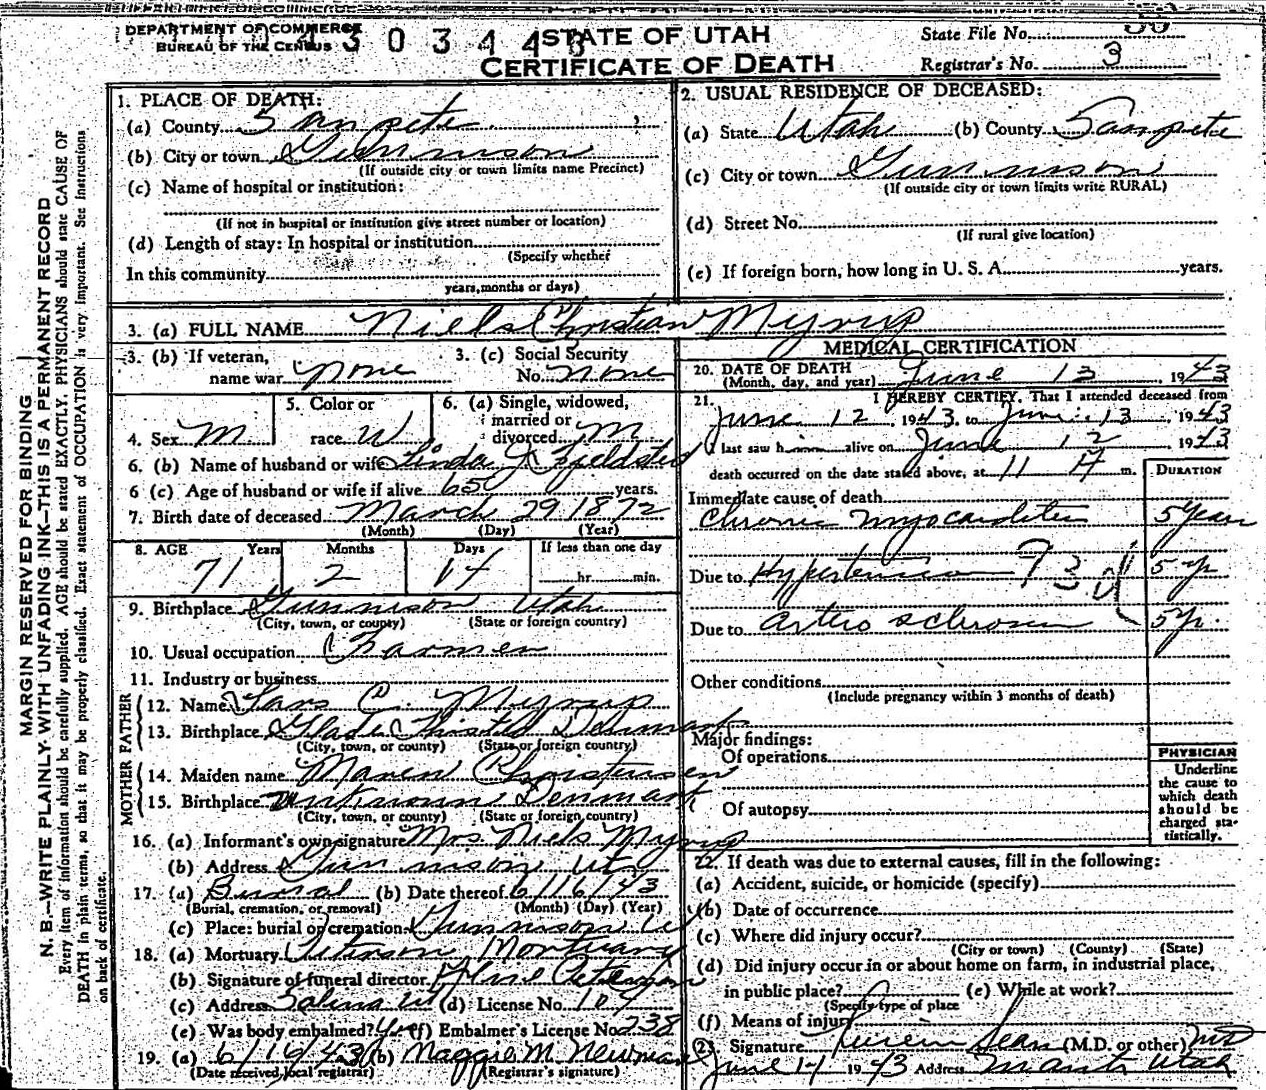 DEPARTMENT OF COMMERCE
BUREAU OF THE CENSUS
STATE OF UTAH
CERTIFICATE OF DEATH
State File No.
Registrar's No. 3
MARGIN RESERVED FOR BINDING
N. B.—WRITE PLAINLY WITH UNFADING INK—THIS IS A PERMANENT RECORD
Every item of information should be carefully supplied. AGE should be stated EXACTLY. PHYSICIANS should state CAUSE OF
DEATH in plain terms, so that it may be properly classified. Exact statement of OCCUPATION is very important. See instructions
on back of certificate.
1. PLACE OF DEATH:
(a) County Sanpete
(b) City or town Gunnison
(If outside city or town limits name Precinct)
(c) Name of hospital or institution:
(If not in hospital or institution give street number or location)
(d) Length of stay: In hospital or institution
(Specify whether
In this community
years, months or days)
2. USUAL RESIDENCE OF DECEASED:
(a) State Utah (b) County Sanpete
(c) City or town Gunnison
(If outside city or town limits write RURAL)
(d) Street No.
(If rural give location)
(e) If foreign born, how long in U. S. A. years.
3. (a) FULL NAME Niels Christian Myrup
3. (b) If veteran,
name war none
3. (c) Social Security
No. none
4. Sex M
5. Color or
race W
6. (a) Single, widowed,
married or
divorced M
6. (b) Name of husband or wife Linda J Fjeldsted
6 (c) Age of husband or wife if alive 65 years.
7. Birth date of deceased March 29 1872
(Month) (Day) (Year)
8. AGE Years Months Days If less than one day
71 2 14 hr. min.
9. Birthplace Gunnison Utah
(City, town, or county) (State or foreign country)
10. Usual occupation Farmer
11. Industry or business
FATHER
12. Name Lars C. Myrup
13. Birthplace Thisted Denmark
(City, town, or county) (State or foreign country)
MOTHER
14. Maiden name Maren Christensen
15. Birthplace Unknown Denmark
(City, town, or county) (State or foreign country)
16. (a) Informant's own signature Mrs Niels Myrup
(b) Address Gunnison Ut
17. (a) Burial (b) Date thereof 6/16/43
(Burial, cremation, or removal) (Month) (Day) (Year)
(c) Place: burial or cremation Gunnison Ut
18. (a) Mortuary Peterson Mortuary
(b) Signature of funeral director Peterson
(c) Address Salina Ut (d) License No. 104
(e) Was body embalmed? Yes (f) Embalmer's License No. 238
19. (a) 6/16/43 (b) Maggie M. Newman
(Date received local registrar) (Registrar's signature)
MEDICAL CERTIFICATION
20. DATE OF DEATH
(Month, day, and year) June 13, 1943
21. I HEREBY CERTIFY, That I attended deceased from
June 12, 1943, to June 13, 1943
I last saw him alive on June 12 1943
death occurred on the date stated above, at 11 A m.
DURATION
Immediate cause of death
Chronic myocarditis 5 years
Due to Hypertension 5 yr
93d
Due to arterio sclerosis 5 yr.
Other conditions
(Include pregnancy within 3 months of death)
Major findings:
Of operations
Of autopsy
PHYSICIAN
Underline
the cause to
which death
should be
charged sta-
tistically.
22. If death was due to external causes, fill in the following:
(a) Accident, suicide, or homicide (specify)
(b) Date of occurrence
(c) Where did injury occur?
(City or town) (County) (State)
(d) Did injury occur in or about home on farm, in industrial place,
in public place? (e) While at work?
(Specify type of place
(f) Means of injury
23. Signature Sears (M.D. or other) MD
June 14 1943 Address Manti Utah